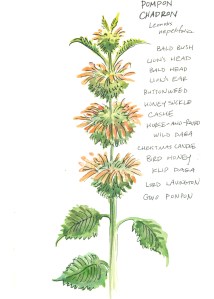 POMPON
CHADRON
Leonotis
nepetifolia
BALD BUSH
LION'S HEAD
BALD HEAD
LION'S EAR
BUTTONWEED
HONEYSUCKLE
CASHIE
HORSE-AND-
WILD DAGA
CHRISTMAS CANDLE
BIRD HONEY
KLIP DAGA
LORD LAVINGTON
GOVO POMPON